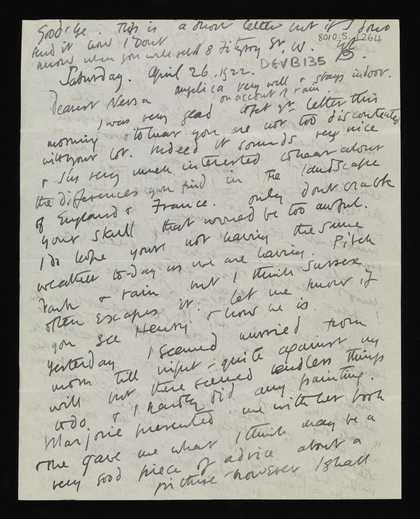 Goodbye. This is a short letter but if I don't
send it now I don't
know when you will. 8 Fitzroy St. W.
8010.5.1264
DEVB135
Saturday. April 26. 1922.
Angelica very well & stays indoors
on account of rain
Dearest Nessa
I was very glad to get yr letter this
morning & to hear you are not too discontented
with your lot. Indeed it sounds very nice
& I'm very much interested to hear about
the differences you find in the landscape
of England & France. Only don't crack
your skull that would be too awful.
I do hope you're not having the same
weather today as we are having. Pitch
dark & rain but I think Sussex
often escapes it. Let me know if
you see Henry & how he is
Yesterday I seemed worried from
morn till night – quite against my
will but there seemed endless things
to do. & I hardly did any painting.
Marjorie presented me with her book
& she gave me what I think may be a
very good piece of advice about a
picture however I shall